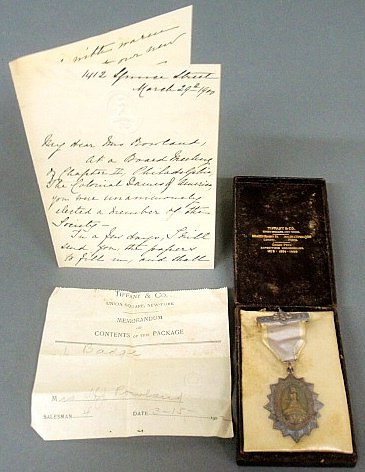 with warm
our new
1412 Spruce Street
March 29th 1900
My dear Mrs Bowland,
at a Board Meeting
of Chapter II, Philadelphia,
The Colonial Dames of America
you were unanimously
elected a member of the
Society—
In a few days, I will
send you the papers
to fill in, and shall
TIFFANY & CO.
UNION SQUARE, NEW YORK
MEMORANDUM
OF
CONTENTS OF THIS PACKAGE
1 Badge
Mrs Rowland
SALESMAN 4 DATE 3-15
TIFFANY & CO.
UNION SQUARE, NEW YORK